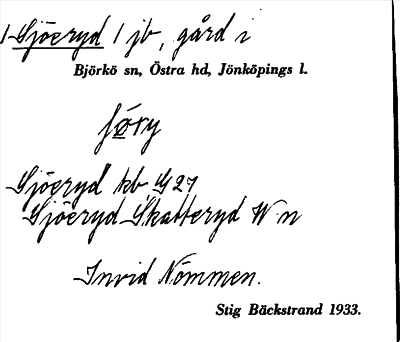 1 Sjöeryd 1 jb, gård i
Björkö sn, Östra hd, Jönköpings l.
jøry
Sjöeryd kb G 27
Sjöeryd Skatteryd W n
Invid Nömmen.
Stig Bäckstrand 1933.